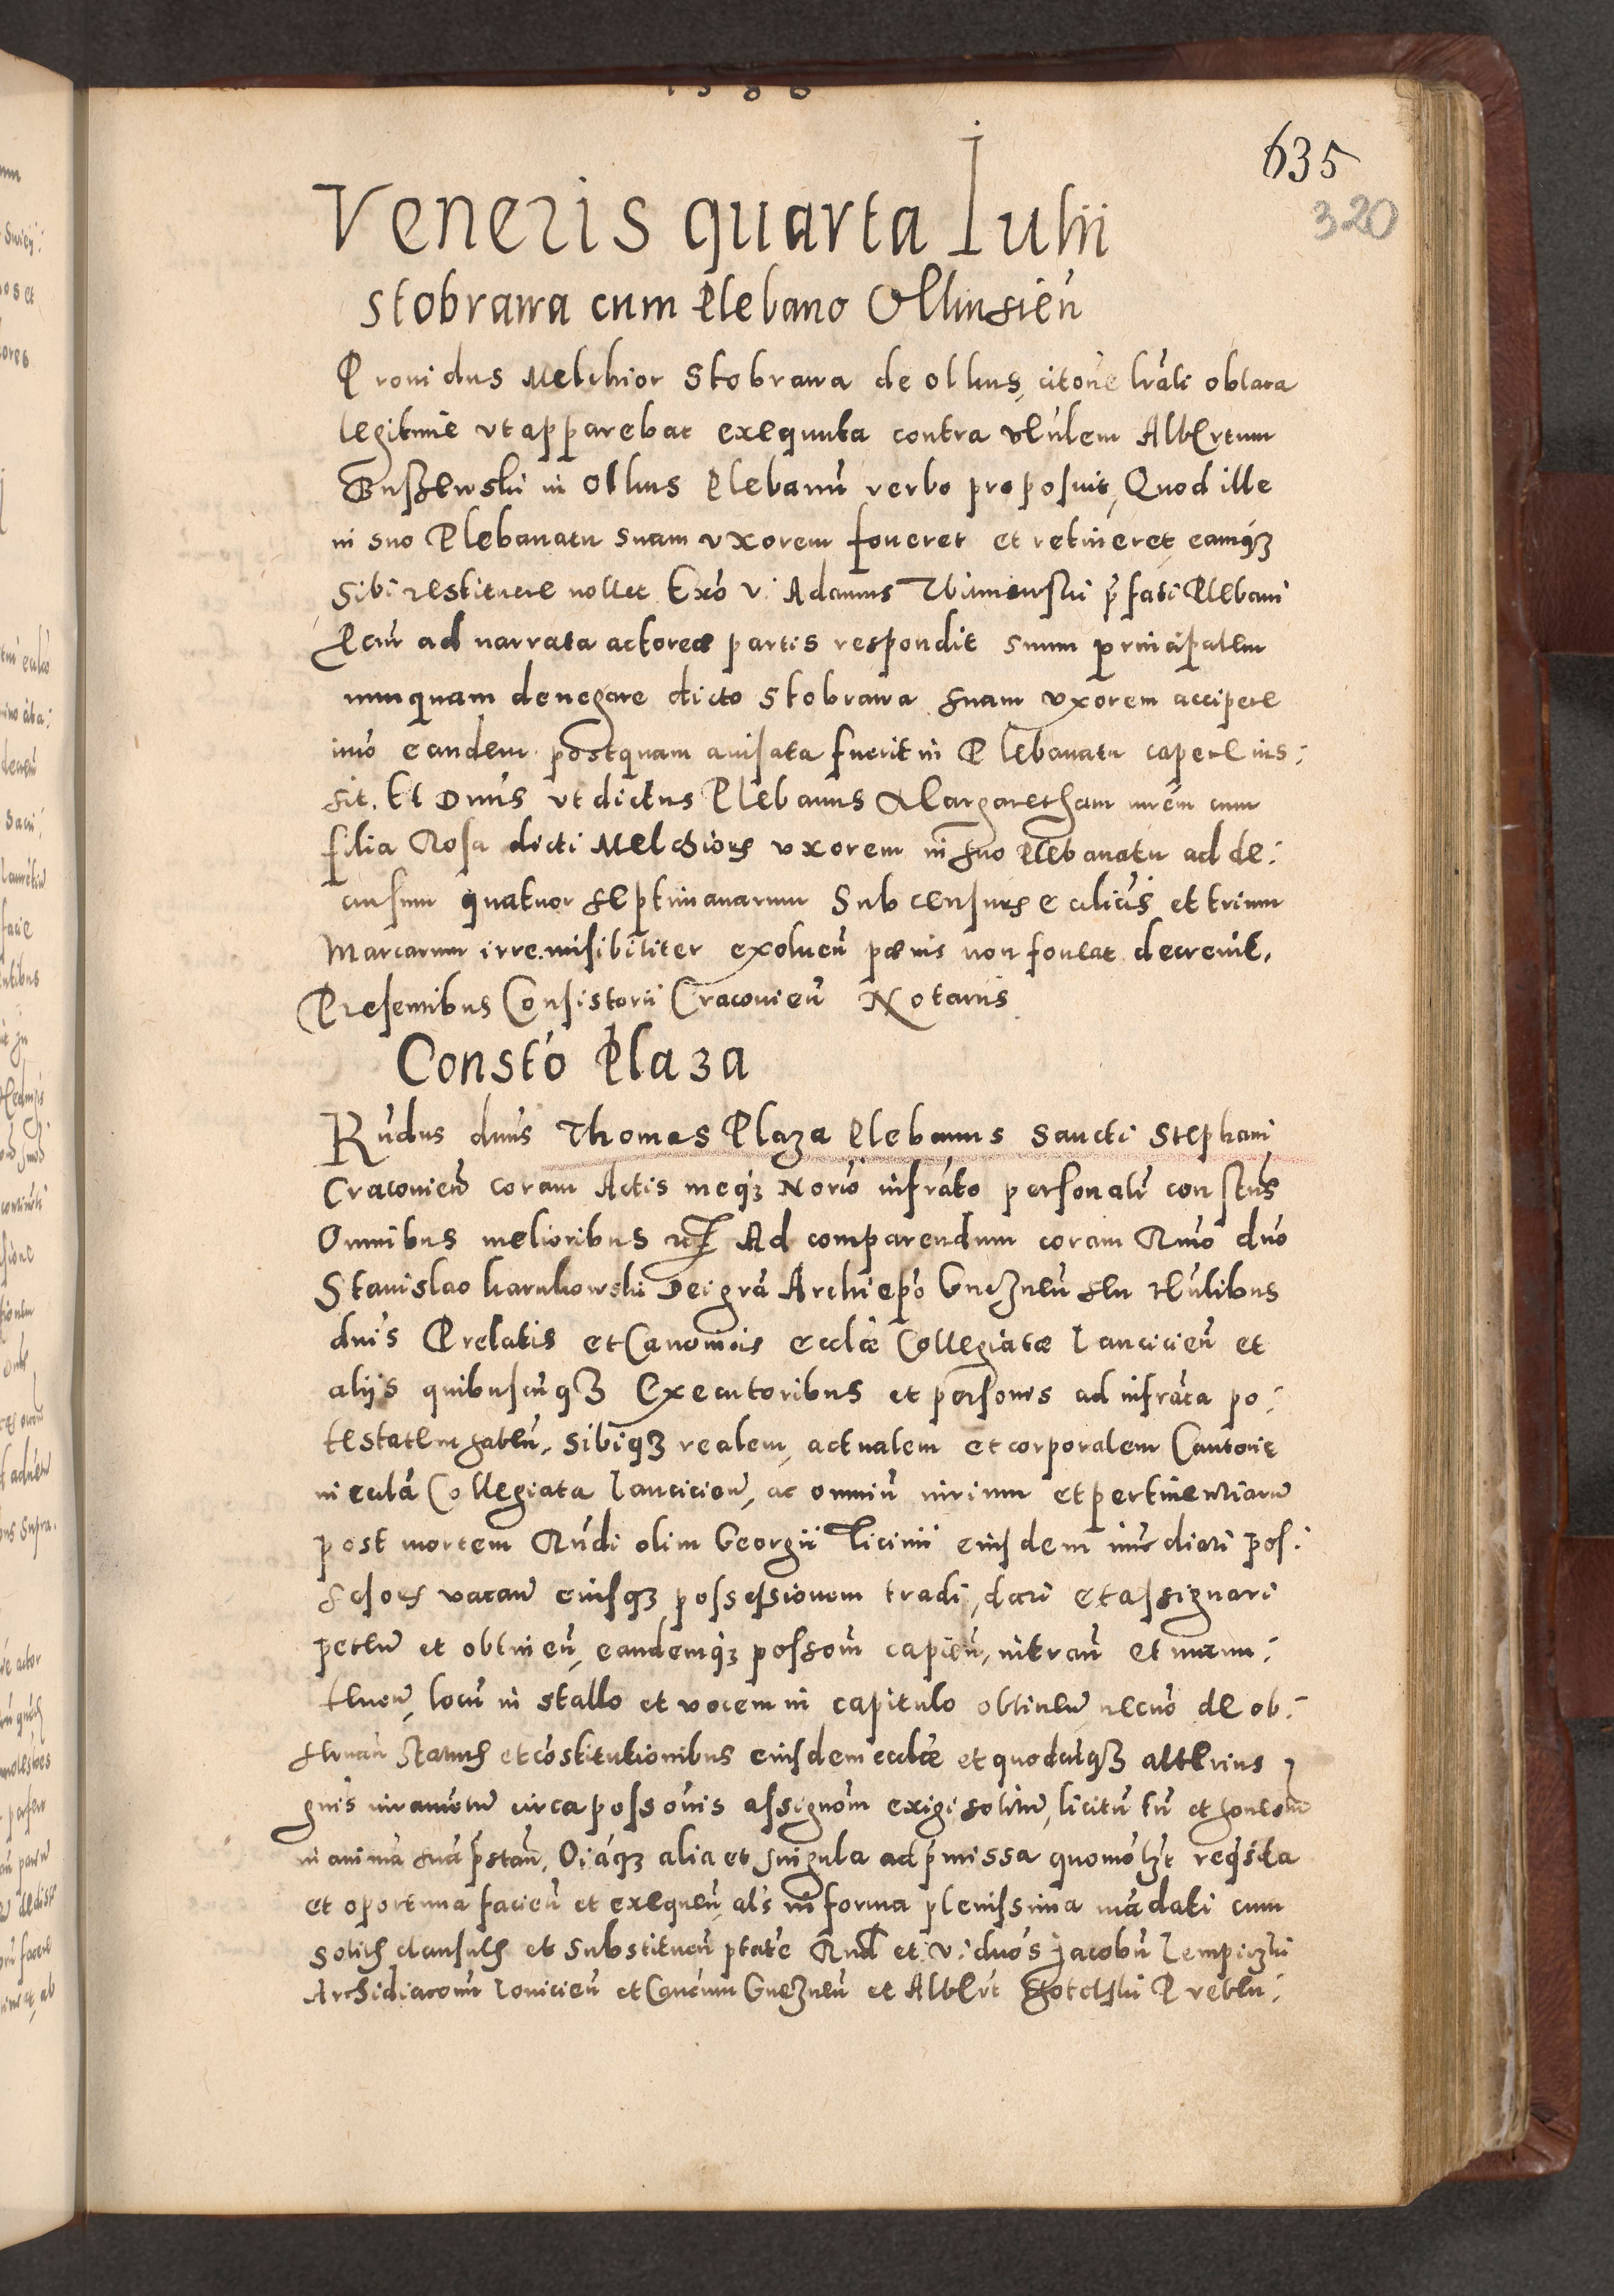 635
320
Veneris quarta Iulii
Stobrawa cum Plebano Olkusień
Providus Melchior Stobrawa de Olkus, citoñe lrãli oblata
legitime ut apparebat exequuta contra vẽnlem Albertum
in Olkus Plebanũ verbo proposuit, Quod ille
in suo Plebanatu suam uxorem foveret et retineret, eamq3
sibi restituere nollet Exõ v. Adamus p̃fati Plebani
Pcũr ad narrata actoreæ partis respondit suum principalem
nunquam denegare dicto Stobrawa suam uxorem accipere
imõ eandem postquam avisata fuerit in Plebanatu capere ius:
sit. Et Dñus ut dictus Plebanus Margaretham mrẽm cum
filia Rosa dicti Melchioris uxorem in suo Plebanatu ad de:
cursum quatuor septimanarum sub censuris ecclicis et trium
Marcarum irremisibiliter exolveñ pœnis non foveat decrevit.
Presentibus Consistorii Cracovieñ Notariis
Constõ Plaza
Rñdus dñus Thomas Plaza Plebanus Sancti Stephani
Cracovieñ coram Actis meq3 Norio infrãto personalr̃ constũs
Omnibus melioribus Ad comparendum coram Rmõ dño
Stanislao Karnkowski Dei grã Archiepõ Gnezneñ seu vẽnlibus
dñis Prelatis et Canonicis eccliæ Collegiatæ Lancicieñ et
aliis quibuscũq3 Executoribus et personis ad infrãta po:
testatem habeñ, sibiq3 realem, actualem et corporalem Cantoriæ
in ecclã Collegiata Lancicieñ, ac omniũ iurium et pertinentiarũ
post mortem Rñdi olim Georgii Ticinii eiusdem im̃edicti pos:
sessoris vacañ eiusq3 possessionem tradi, dari et assignari
peteñ et obtineñ, eandemq3 possom̃ capieñ, intrañ et manu:
teneñ, locũ in stallo et vocem in capitulo obtineñ necnõ de ob:
servañ statutis et cõstitutionibus eiusdem eccliæ et quodcũq3 alterius
gñis iuramentũ circa possõnis assignom̃ exigi solitũ, licitũ tñ et honestũ
in animã suã p̃stañ, Oĩaq3 alia et singula ad p̃missa quomolz reqsita
et oportuna facieñ et exequeñ, als̃ in forma plenissima mãdati cum
solitis clausulis et substitueñ ptatẽ Rnd et v. dños Jacobũ Lempiczki
Archidiaconũ Lovicieñ et Canõm Gnezneñ et Albert̃ Preben: